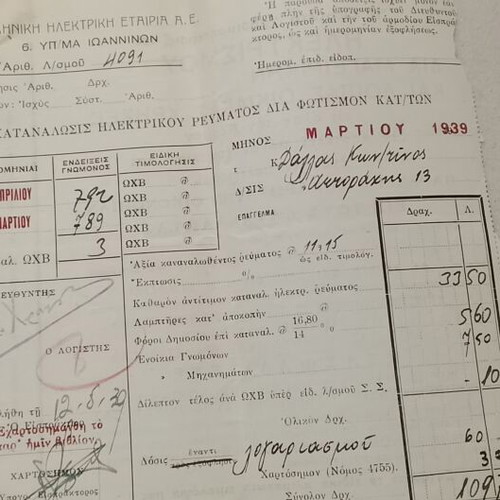 ΗΝΙΚΗ ΗΛΕΚΤΡΙΚΗ ΕΤΑΙΡΙΑ Α.Ε.
6. ΥΠ/ΜΑ ΙΩΑΝΝΙΝΩΝ
Ἀριθ. Λ/σμοῦ 4091
ησις Ἀριθ. Δρχ.
ον: Ἰσχὺς Σύστ. Ἀριθ.
Ἡ παροῦσα
φέρει πλὴν τῆς ὑπογραφῆς τοῦ Διευθυντοῦ
καὶ Λογιστοῦ καὶ τὴν τοῦ ἁρμοδίου Εἰσπρά
κτορος, ὡς καὶ ἡμερομηνίαν ἐξοφλήσεως.
Ἡμερομ. ἐπιδ. εἰδοπ.
ΚΑΤΑΝΑΛΩΣΙΣ ΗΛΕΚΤΡΙΚΟΥ ΡΕΥΜΑΤΟΣ ΔΙΑ ΦΩΤΙΣΜΟΝ ΚΑΤ/ΤΩΝ
ΜΗΝΟΣ ΜΑΡΤΙΟΥ 1939
Κ.
Δ/ΣΙΣ 13
ΕΠΑΓΓΕΛΜΑ
ΟΜΗΝΙΑΙ ΕΝΔΕΙΞΕΙΣ ΓΝΩΜΟΝΟΣ ΕΙΔΙΚΗ ΤΙΜΟΛΟΓΗΣΙΣ
ΠΡΙΛΙΟΥ 792 ΩΧΒ @
ΩΧΒ @
ΜΑΡΤΙΟΥ 789 ΩΧΒ @
ΩΧΒ @
αλ. ΩΧΒ 3 ΩΧΒ @
Δραχ. Λ.
Ἀξία καναλωθέντος ρεύματος @ 11,15
ὡς εἰδ. τιμολόγ.
Ἔκπτωσις %
Καθαρὸν ἀντίτιμον καταναλ. ἠλεκτρ. ρεύματος 33 50
Λαμπτῆρες κατ' ἀποκοπὴν
Φόροι Δημοσίου ἐπὶ καταναλ. @ 16,80 % 14 5 60
Ἐνοίκια Γνωμόνων 7 50
» Μηχανημάτων
Δίλεπτον τέλος ἀνὰ ΩΧΒ ὑπὲρ εἰδ. λ/σμοῦ Σ. Σ. - 10
Ὁλικὸν Δρχ.
Δόσις ἔναντι λογαριασμοῦ 60
Χαρτόσημον (Νόμος 4755). 3
Σύνολον Δρχ.
ΕΥΘΥΝΤΗΣ
Ο ΛΟΓΙΣΤΗΣ
λήθη τῇ
Ὁ Εἰσπράκτωρ
Ἐχαρτοσημάνθη τὸ
παρ' ἡμῖν βιβλίον
ΧΑΡΤΟΣΗΜΟΝ